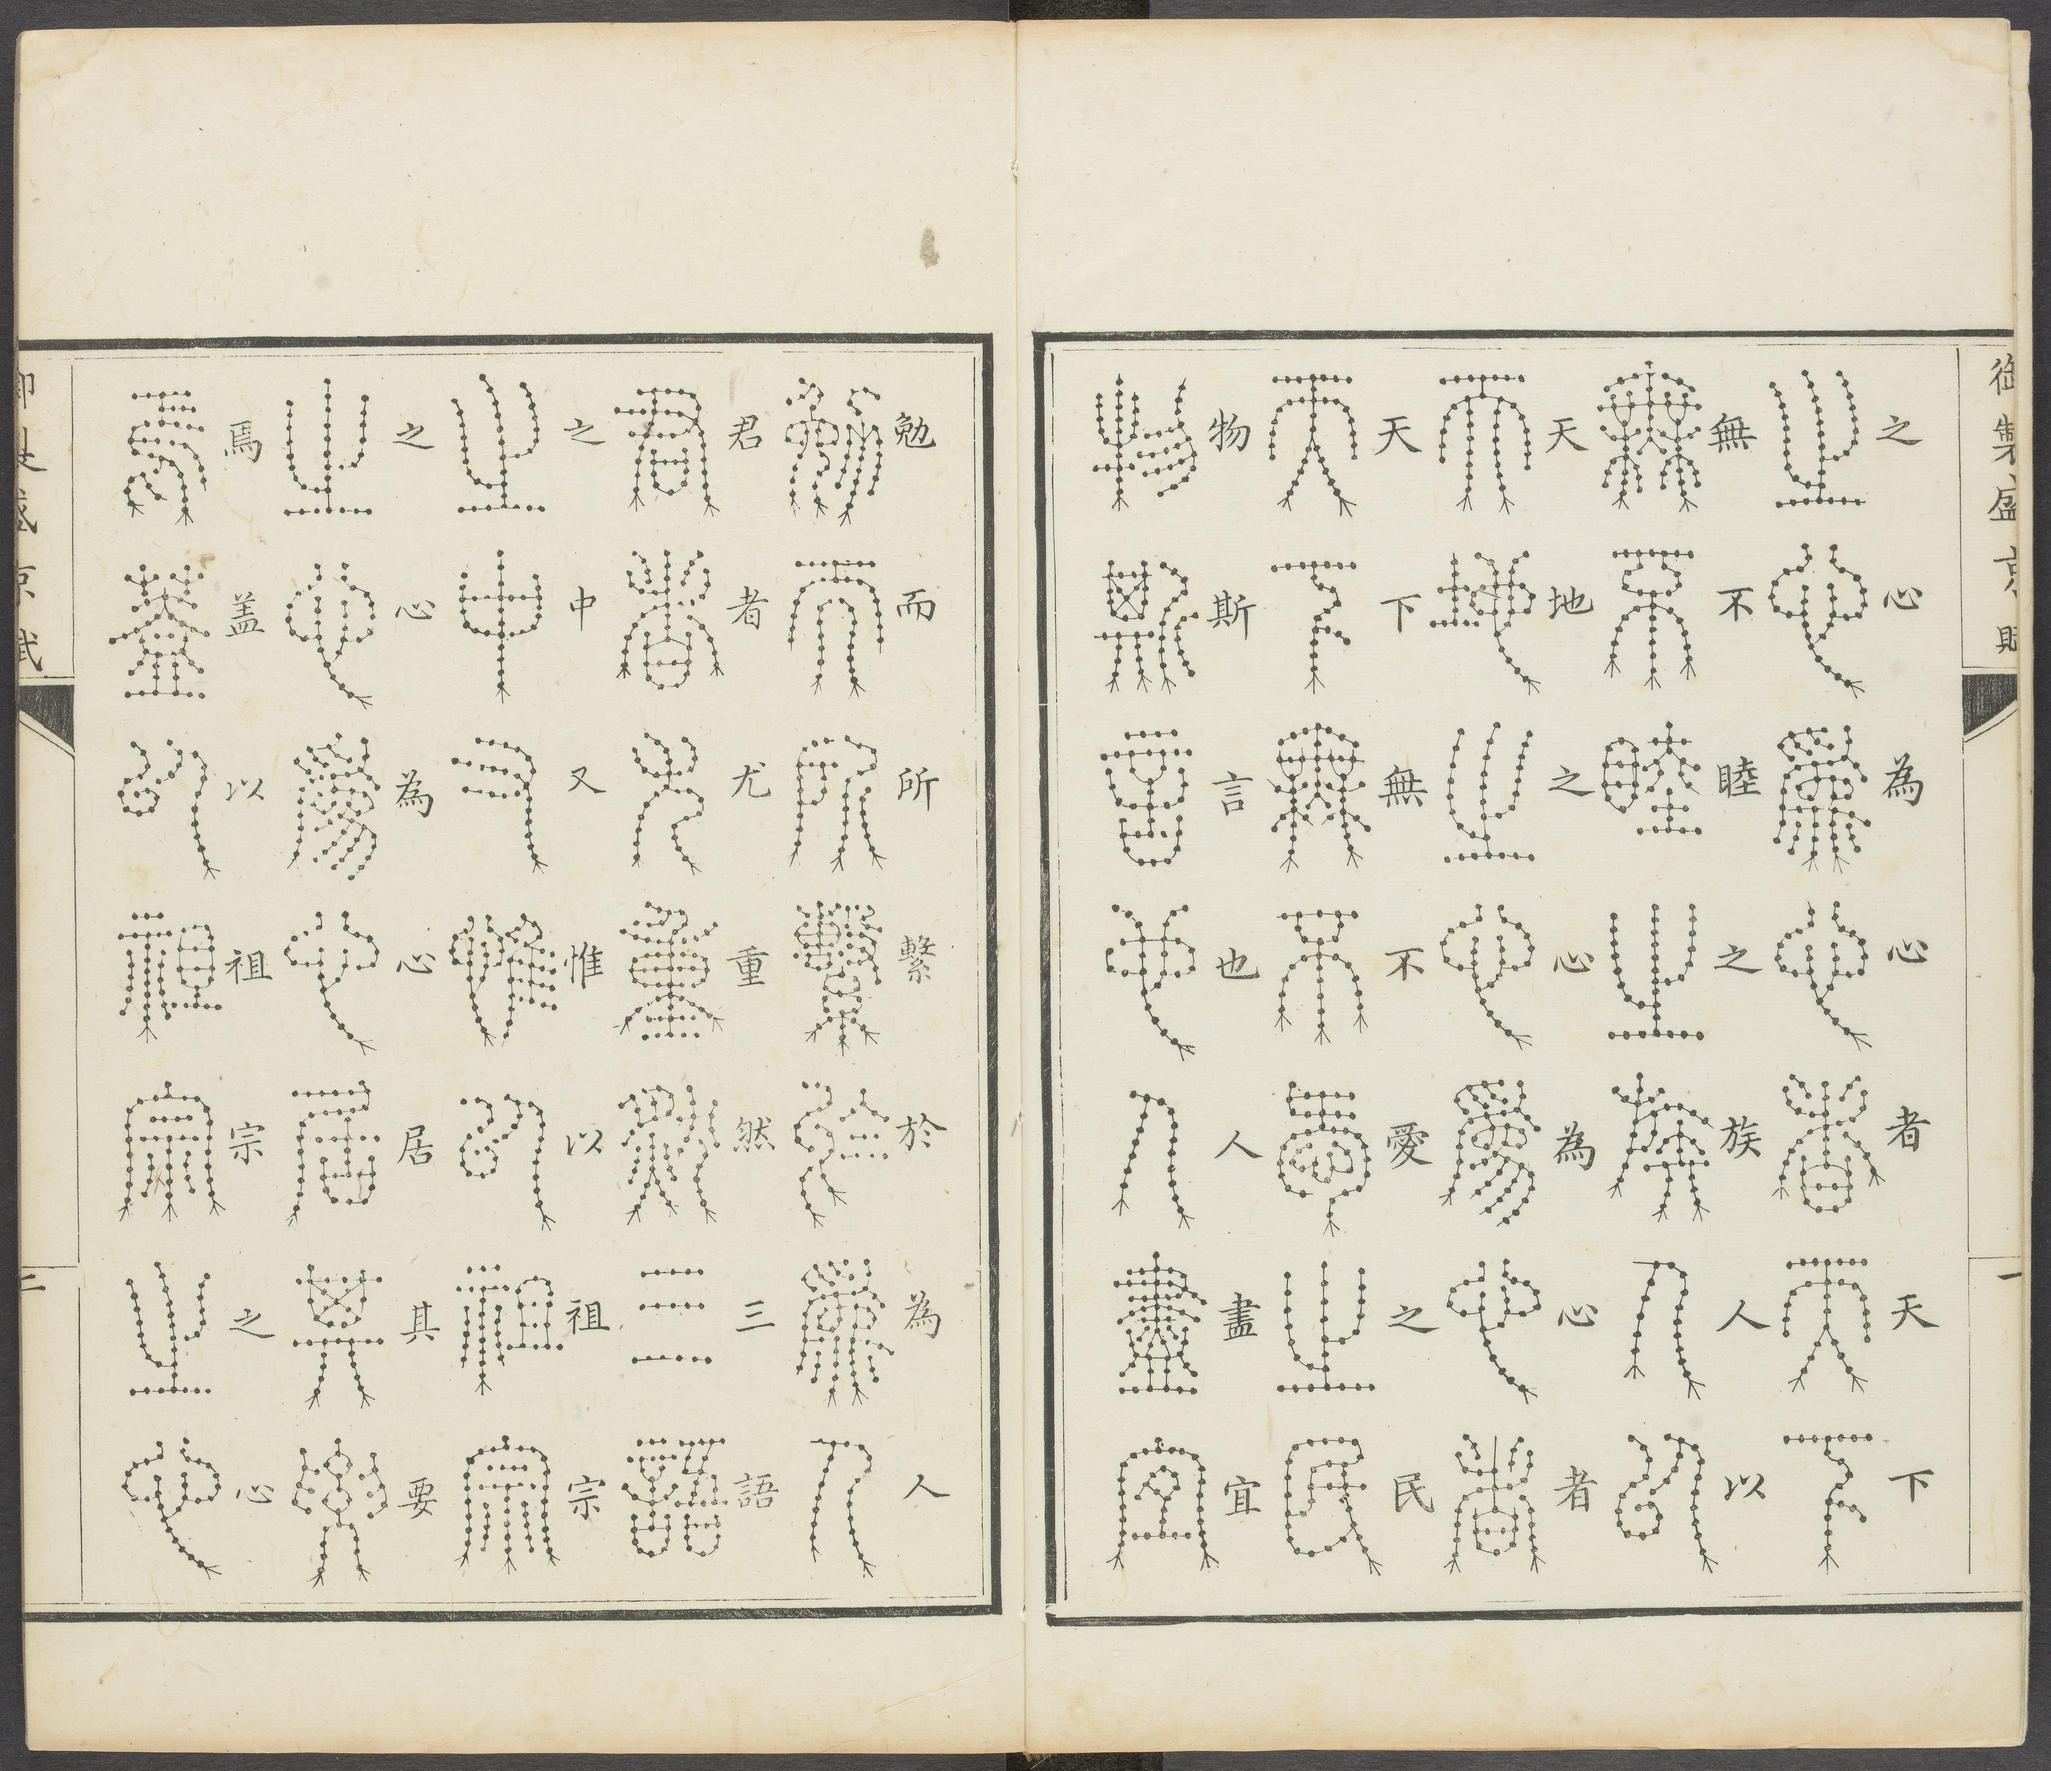 御製盛京賦
一
之心為心者天下
無不睦之族人以
天地之心為心者
天下無不愛之民
物斯言也人盡宜
勉而所繫於為人
君者尤重然三語
之中又惟以祖宗
之心為心居其要
焉盖以祖宗之心
二